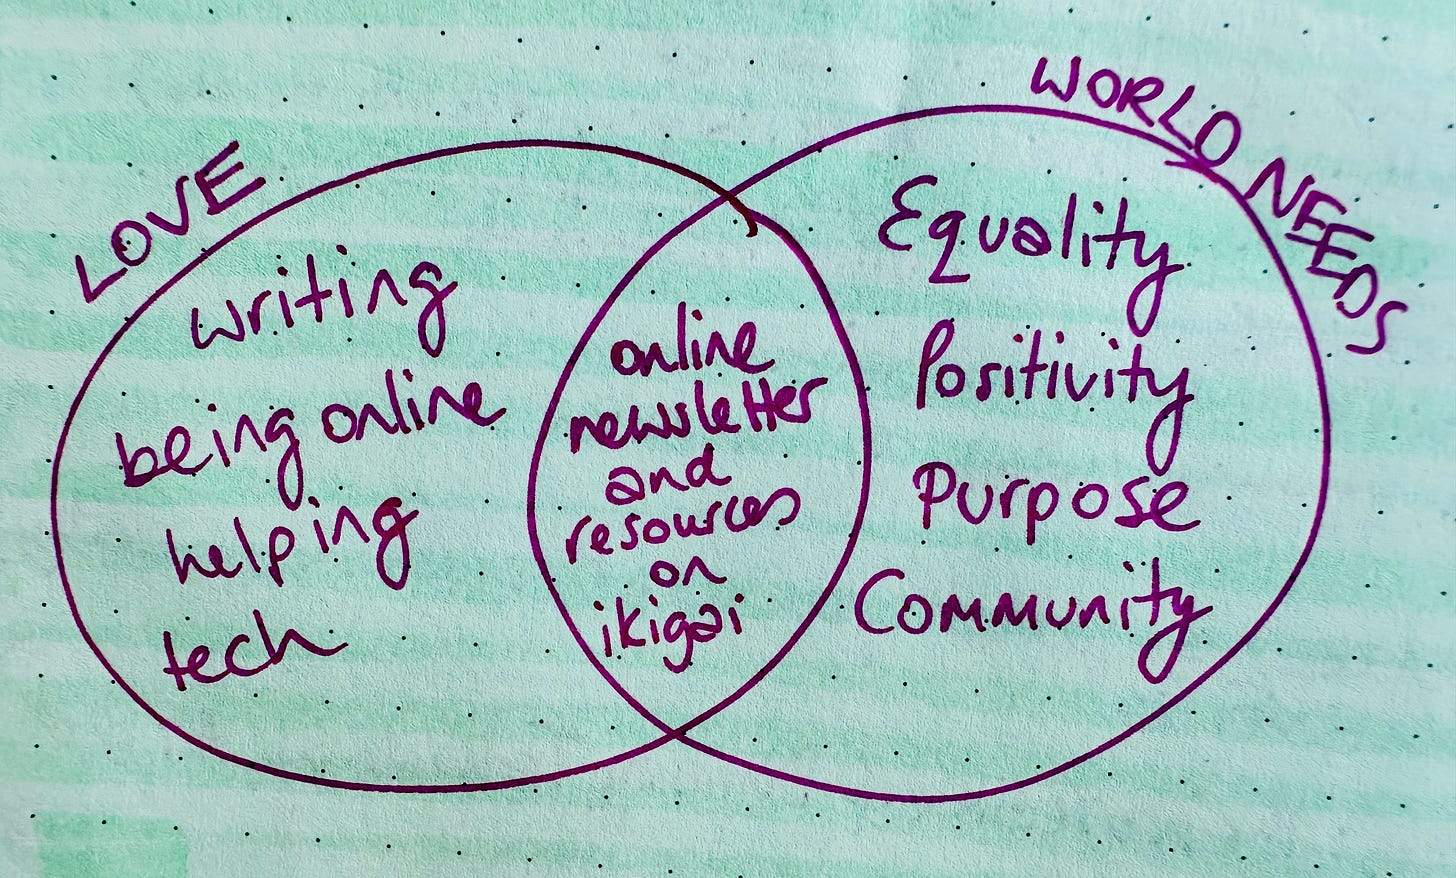 LOVE
writing
being online
helping
tech
online
newsletter
and
resources
on
ikigai
WORLD NEEDS
Equality
Positivity
Purpose
Community